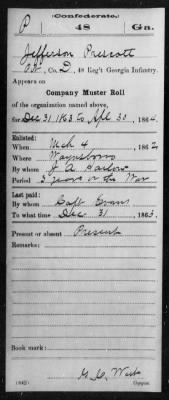 (Confederate.)
P 48 Ga.
Jefferson Prescott
Co. D, 48 Reg't Georgia Infantry.
Appears on
Company Muster Roll
of the organization named above,
for Dec 31 1863 to Apl 30, 1864.
Enlisted:
When Mch 4, 1862
Where Waynsboro
By whom J A
Period 3 years or the War
Last paid:
By whom Capt Evans
To what time Dec 31, 1863.
Present or absent Present
Remarks:
Book mark:
(642) Copyist.